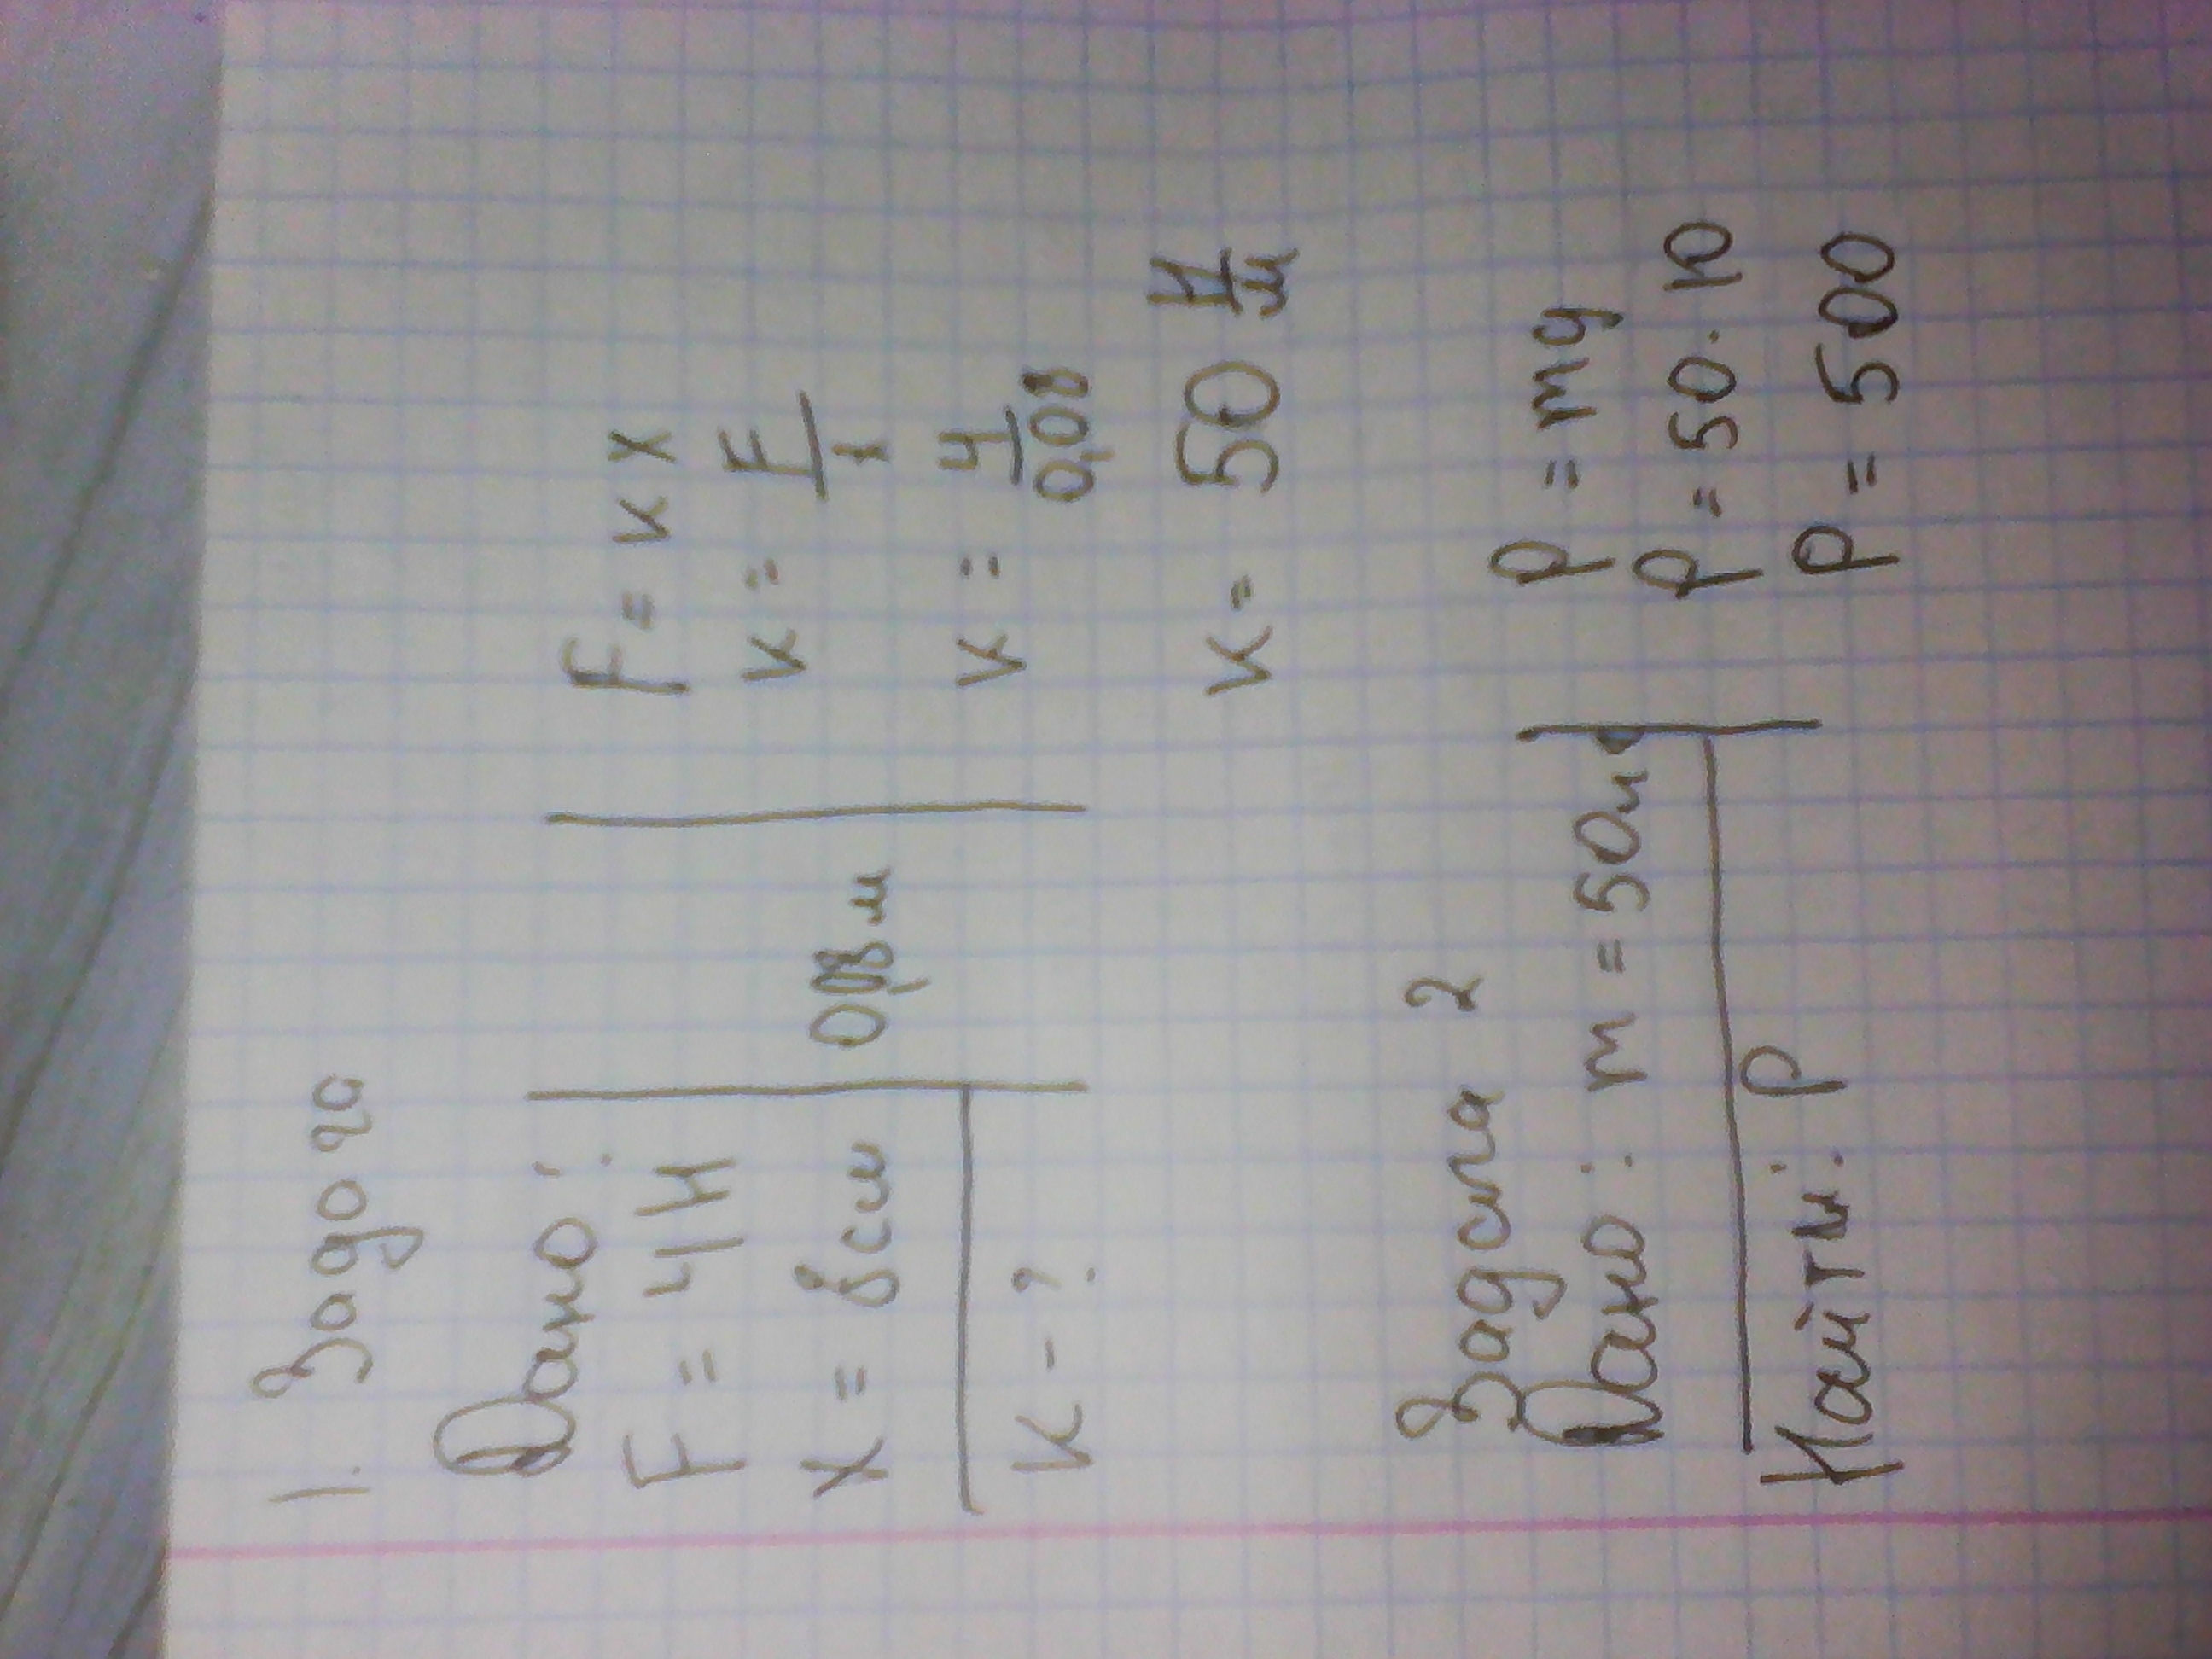 1. Задача
Дано:
F = 4Н
x = 8см 0,08 м
k - ?
F = k x
k = F/x
k = 4/0,08
k = 50 Н/м
Задача 2
Дано: m = 50
Найти: P
P = mg
P = 50 · 10
P = 500